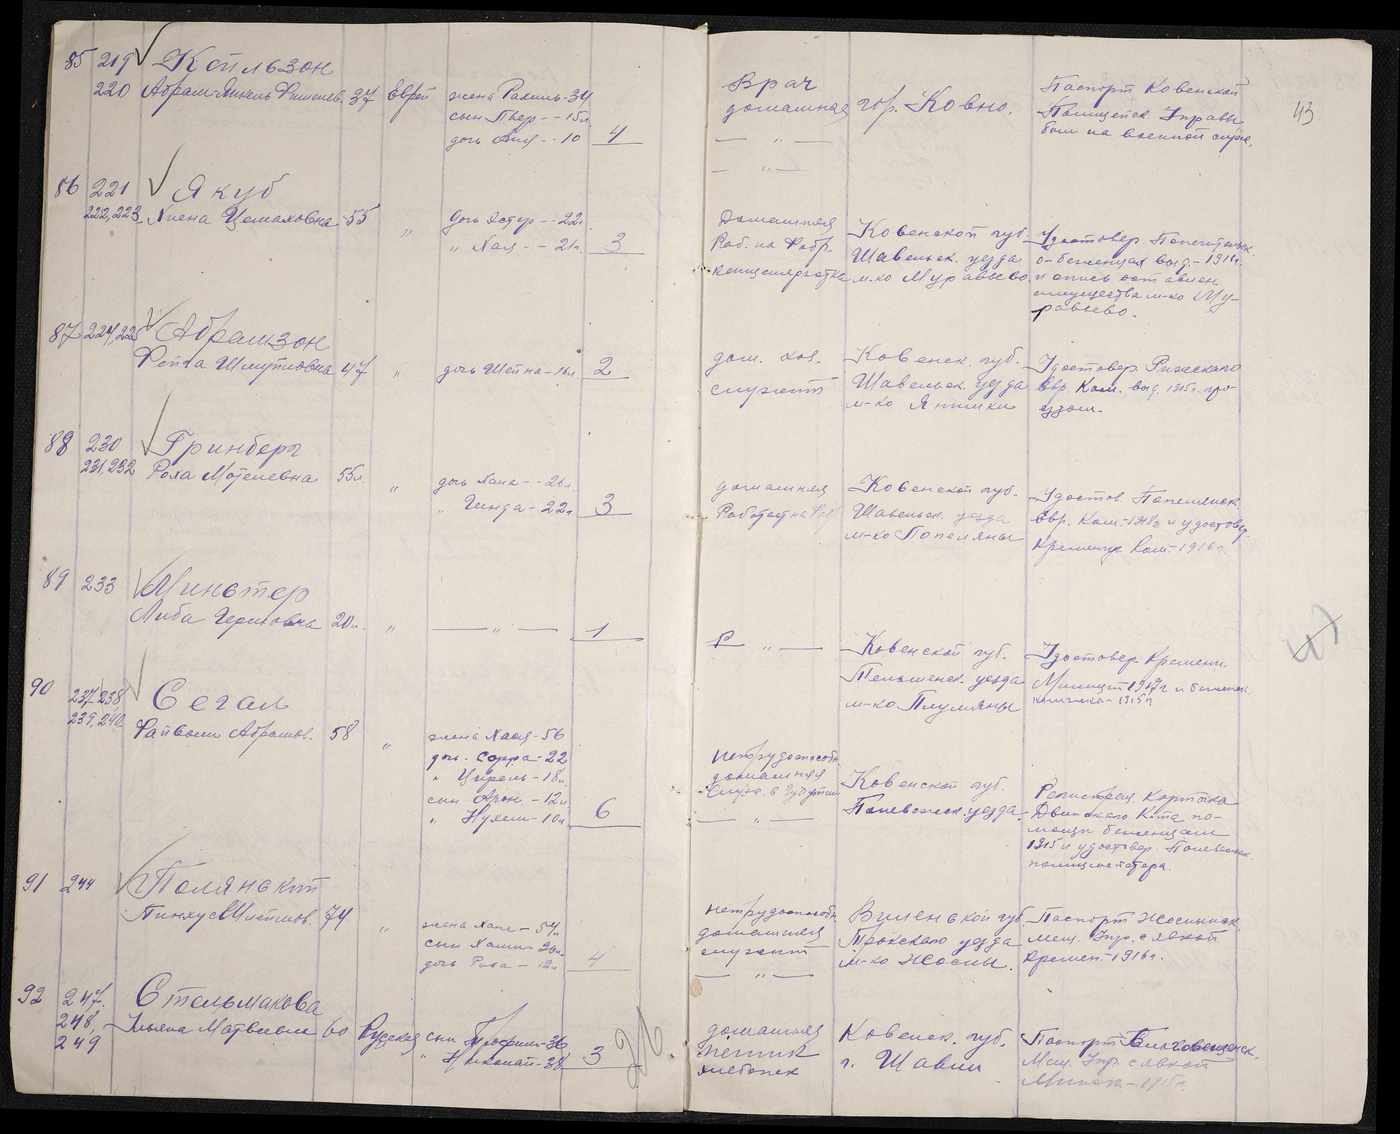 85 219 Копльзон
220 Абрам-Янкель 37 Еврей жена Рахиль-34
сын Пвер - - 15л.
дочь Аня - - 10 4
Врач
домашная гор. Ковно.
— " —
— " —
Паспорт Ковенской
Полицейск. Управы
был на военной служ.
43
86 221 Якуб
222,223 Хиена Цемаховна 55 " дочь Эстер - - 22л.
" Хая - - 21л. 3
Домашняя
Раб. на Фабр.
Ковенской губ.
Шавельск. уезда
м-ко Муравьево
Удостовер.
о-беженцах выд.- 191 г.
и опись оставлен.
имущества м-ко Му-
равьево.
87 224,225 Абрамзон
Фейга Шмуиловна 47 " дочь Шейна-16л. 2
дом. хоз.
служит
Ковенск. губ.
Шавельск. уезда
м-ко Янишки
Удостовер. Рижского
Евр. Ком. выд. 1915г. про-
ездом.
88 230 Гринберг
231,232 Роха Мотелевна 55л. " дочь Хана - - 26л.
" Гинда - 22л 3
домашняя
Работает на
Ковенской губ.
Шавельск. уезда
м-ко Попеляны
Удостов. Попелянск.
Евр. Ком.-1915г и удостовер.
Кременчуг Ком.- 1916г.
89 233 Минстер
Либа Гершовна 20л. " — " — 1
Р — " —
Ковенской губ.
Тельшевск. уезда
м-ко Плумяны
Удостовер. Кременч.
Милиции 1917г и беженск.
1915г
90 237,238 Сегаль
239,240 Файвыш Абрамов. 58 " жена Хася-56
дочь. Сорра-22
" Цирель-18л.
сын Арон. -12л
" Нухем-10л 6
нетрудоспособн.
домашняя
— " —
Ковенской губ.
Поневежск. уезда
Регистрац. Карточка
Двинского К-та по-
мощи беженцам
1915 и удостовер. Поневежск.
полицмейстера.
91 244 Полянский
Пинхус 74 " жена Хана - 54л.
сын Хаим- 20л.
дочь Рива - 12л 4
нетрудоспособн.
домашняя
служит
— " —
Виленской губ.
Трокского уезда
м-ко Жосли.
Паспорт Жослинск.
Мещ. Упр. с явкой
Кремен.-1916г.
92 247. Стельмахова
248, Ульяна Матвеевна 60 Русская сын Трофим-36
249 " Николай-28 3
26.
домашняя
хлебопек
Ковенск. губ.
г. Шавли
Паспорт Благовещенск.
Мещ. Упр с явкой
Минск-1915г.